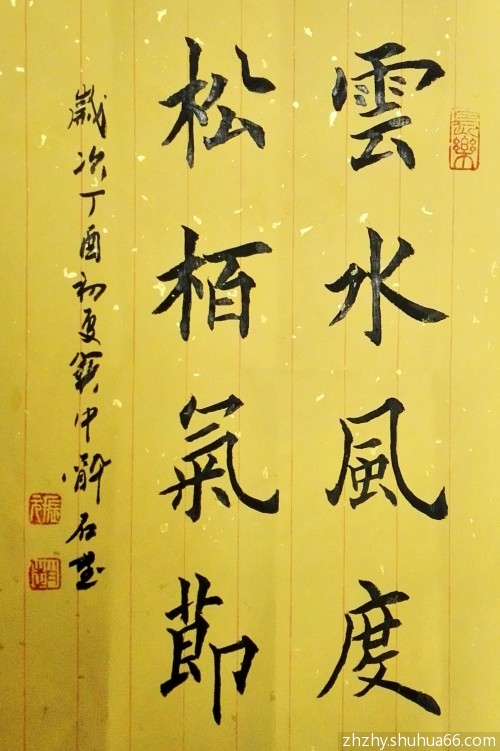 雲水風度
松栢氣節
歲次丁酉初夏
長樂
zhzhy.shuhua66.com